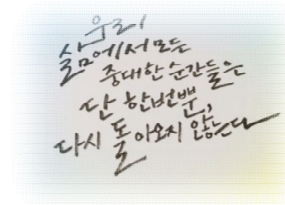 우리
삶에서 모든
중대한 순간들은
단 한번뿐,
다시 돌아오지 않는다